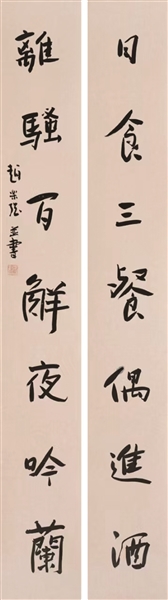 日食三餐偶進酒
離騷百觧夜吟蘭